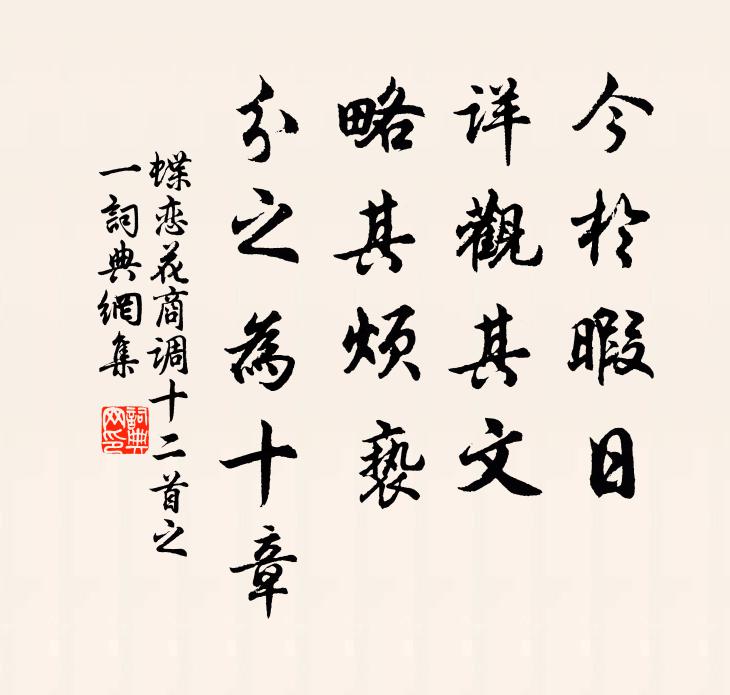 今於暇日
详觀其文
略其烦亵
分之為十章
蝶恋花商调十二首之
一詞典網集
詞典
网印